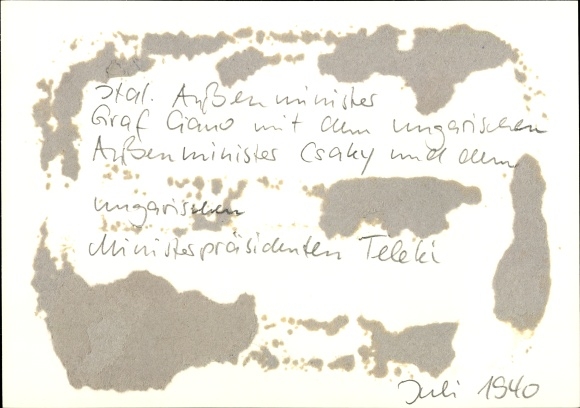 Ital. Außenminister
Graf Ciano mit dem ungarischen
Außenminister Csaky und dem
ungarischen
Ministerpräsidenten Teleki
Juli 1940